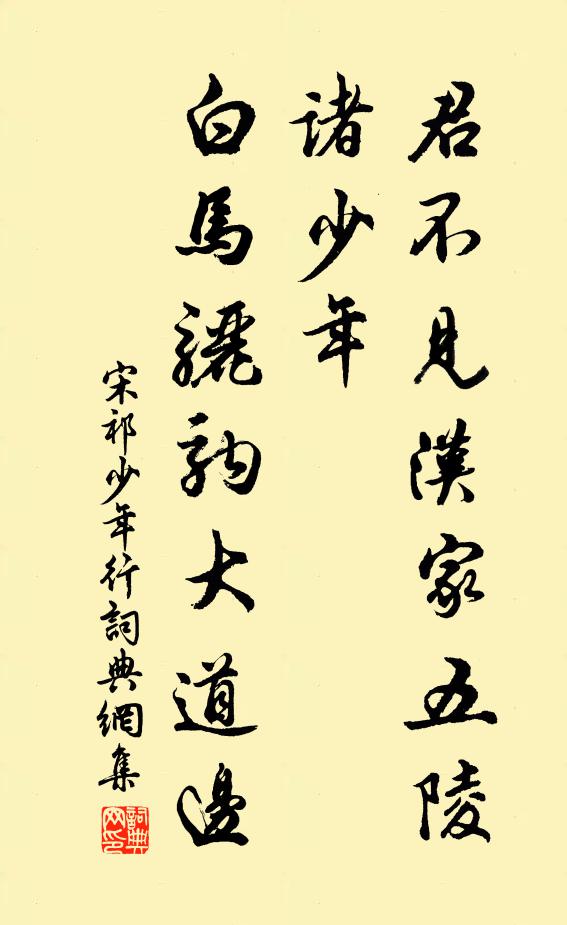 君不見漢家五陵
諸少年
白馬驪駒大道邊
宋祁少年行詞典網集
詞典
网印